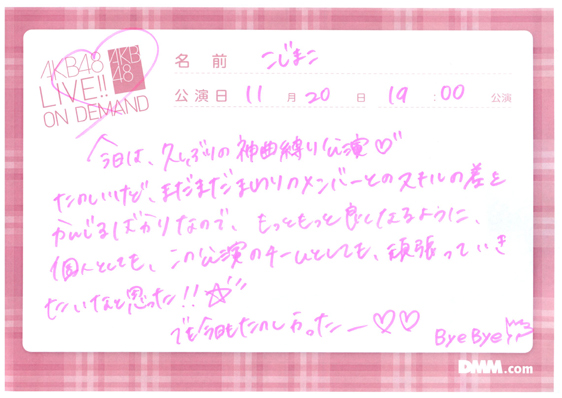 AKB48
LIVE!!
ON DEMAND
AKB
48
名前 こじまこ
公演日 11月20日 19:00 公演
今日は、久しぶりの神曲縛り公演♡
たのしいけど、まだまだまわりのメンバーとのスキルの差を
かんじるばかりなので、もっともっと良くなるように、
個人としても、この公演のチームとしても、頑張っていき
たいなと思った!!☆
でも今日もたのしかったー♡♡
ByeBye
DMM.com